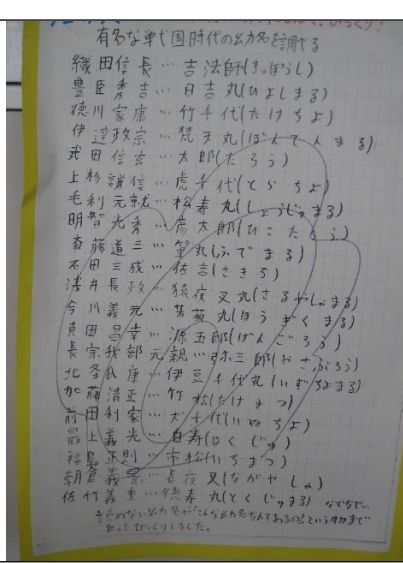 有名な戦国時代の幼名を調べる
織田信長…吉法師(きっぽうし)
豊臣秀吉…日吉丸(ひよしまる)
徳川家康…竹千代(たけちよ)
伊達政宗…梵天丸(ぼんてんまる)
武田信玄…太郎(たろう)
上杉謙信…虎千代(とらちよ)
毛利元就…松寿丸(しょうじゅまる)
明智光秀…彦太郎(ひこたろう)
斎藤道三…峯丸(みねまる)
石田三成…佐吉(さきち)
浅井長政…猿夜叉丸(さるやしゃまる)
今川義元…芳菊丸(ほうぎくまる)
真田昌幸…源五郎(げんごろう)
長宗我部元親…弥三郎(おさぶろう)
北条氏康…伊豆千代丸(いずちよまる)
加藤清正…竹松(たけまつ)
前田利家…犬千代(いぬちよ)
最上義光…白寿(はくじゅ)
福島正則…市松(いちまつ)
朝倉義景…長夜叉(ながやしゃ)
佐竹義重…徳寿丸(とくじゅまる) などなど…
あってびっくりしました。